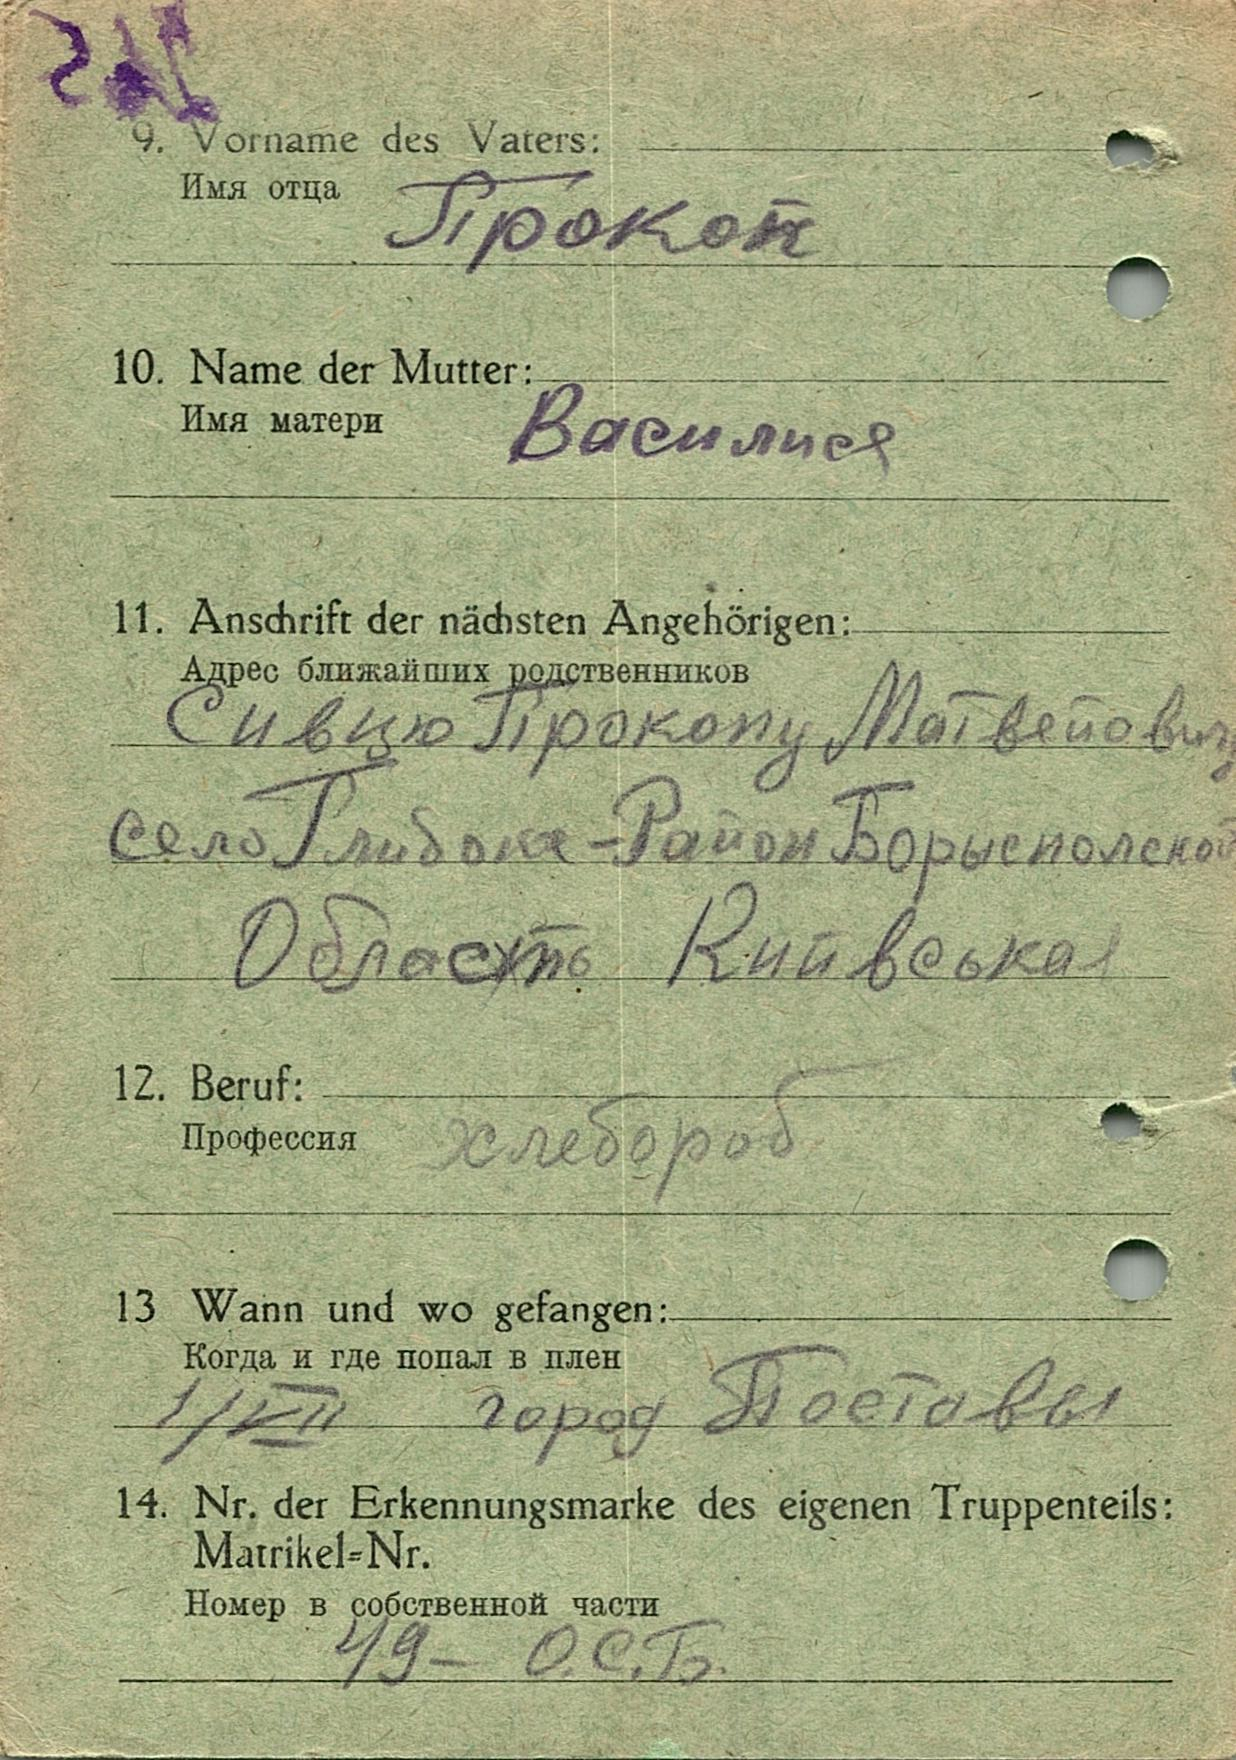 9. Vorname des Vaters:
Имя отца
Прокоп
10. Name der Mutter:
Имя матери
Василися
11. Anschrift der nächsten Angehörigen:
Адрес ближайших родственников
Сивцю Прокопу Матвейовичу
село Глибока - Район Борыспольской
Область Кийвськая
12. Beruf:
Профессия
хлебороб
13 Wann und wo gefangen:
Когда и где попал в плен
1/VII город Поставы
14. Nr. der Erkennungsmarke des eigenen Truppenteils:
Matrikel=Nr.
Номер в собственной части
49 - О.С.Б.